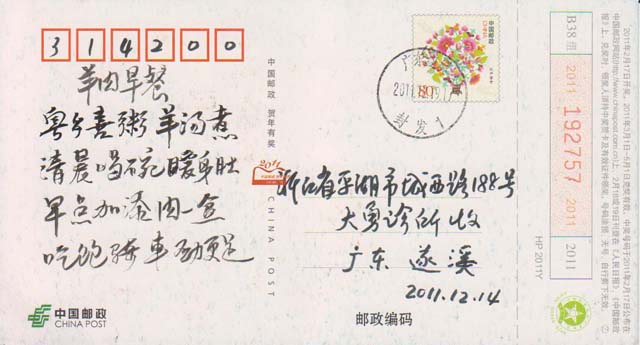 314200
羊肉早餐
粤乡喜粥羊汤煮
清晨喝碗暖身肚
早点加添肉一盒
吃饱骑车劲更足
中国邮政 贺年有奖
2011
CHINA POST
中国邮政
80分
2011.
封发1
浙江省平湖市城西路188号
大勇诊所收
广东 遂溪
2011.12.14
中国邮政
CHINA POST
邮政编码
B38组
2011 192757 2011
2011
HP 2011Y